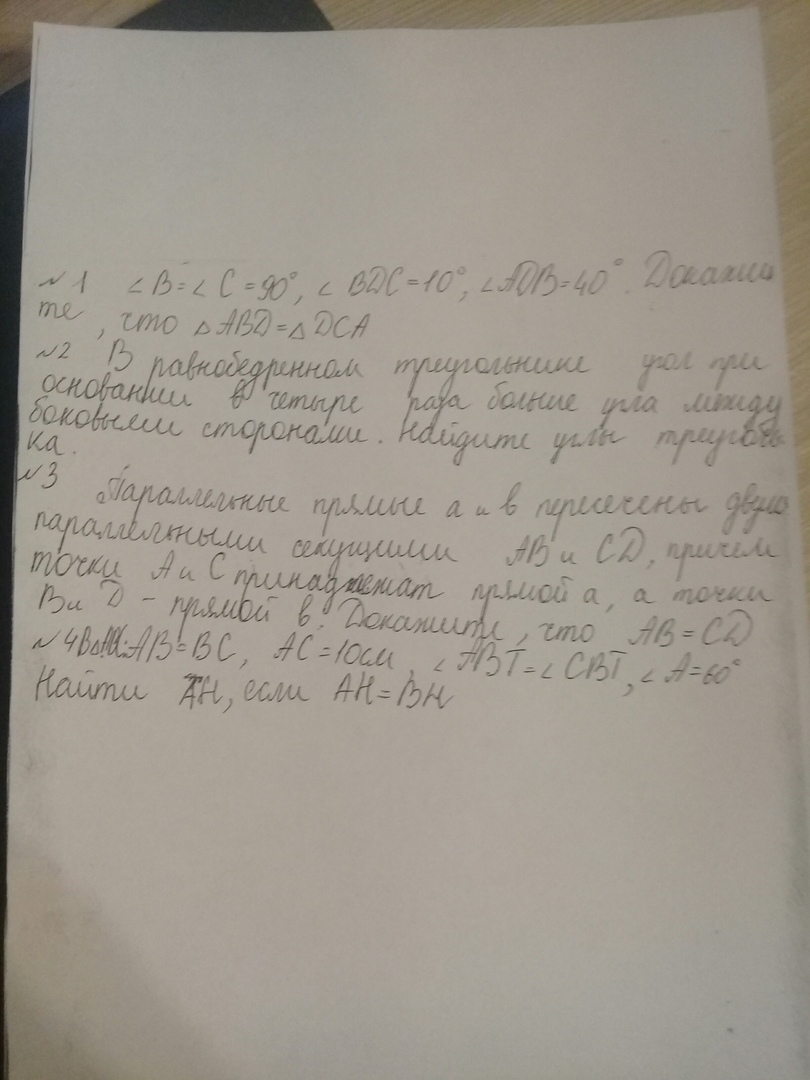 №1 ∠B=∠C=90°, ∠BDC=10°, ∠ADB=40°. Докажи
те, что △ABD=△DCA
№2 В равнобедренном треугольнике угол при
основании в четыре раза больше угла между
боковыми сторонами. Найдите углы треуголь
ка.
№3 Параллельные прямые a и в пересечены двумя
параллельными секущими AB и CD, причем
точки A и C принадлежат прямой a, а точки
B и D - прямой в. Докажите, что AB=CD
№4 В AB=BC, AC=10см, ∠ABT=∠CBT, ∠A=60°
Найти TH, если AH=BH